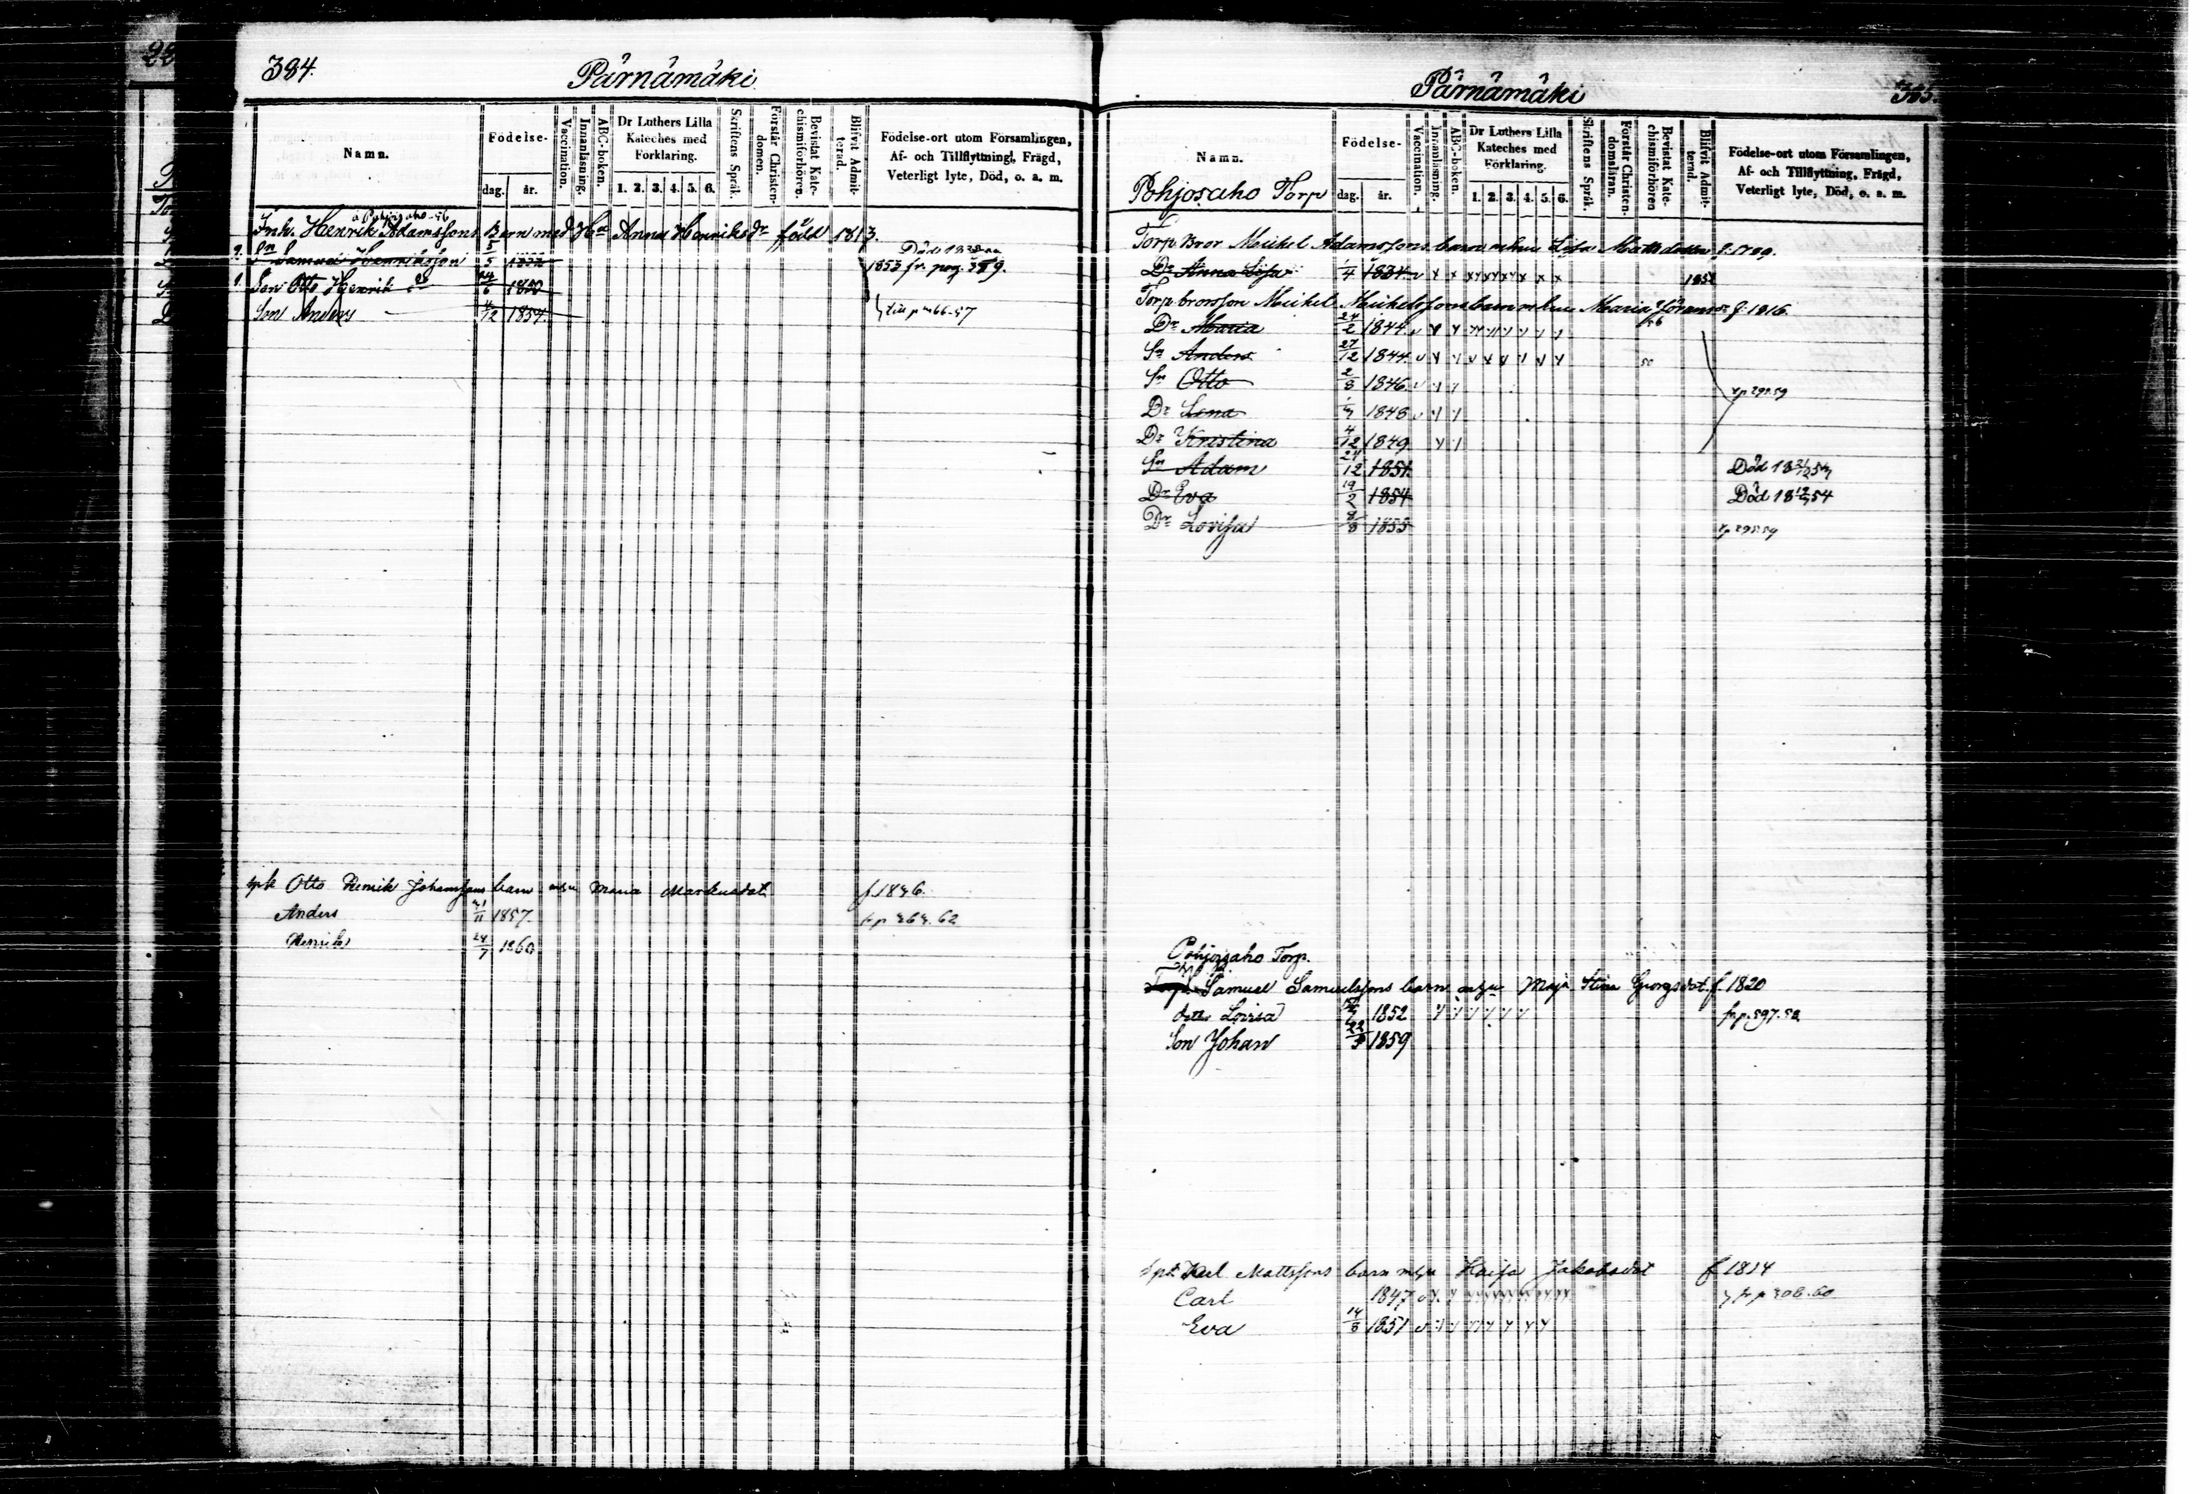 384.
Pärnämäki
Namn.
Födelse-
dag. år.
Vaccination.
Innanläsning.
ABC-boken.
Dr Luthers Lilla Kateches med Förklaring.
1. 2. 3. 4. 5. 6.
Skriftens Språk.
Förstår Christendomen.
Bevistat Katechismiförhören.
Blifvit Admitterad.
Födelse-ort utom Församlingen, Af- och Tillflyttningl, Frägd, Veterligt lyte, Död, o. a. m.
å Pohjosaho-56
Inh. Henrik Adamssons Barn med Hu Anna Henriksdr född 1813.
Sn Samuel 5/5
1853 fr. pag. 379.
Son Otto Henrik 24/6 1850
Son Anders 4/12 1854
till p 466-57
spk Otto Henrik Johanssons barn m hu Maria Markusdot f. 1836.
Anders 21/11 1857. fr p 363.62
Henrik 24/7 1860
Pärnämäki
385.
Namn.
Födelse-
dag. år.
Vaccination.
Innanläsning.
ABC-boken.
Dr Luthers Lilla Kateches med Förklaring.
1. 2. 3. 4. 5. 6.
Skriftens Språk.
Förstår Christendomsläran.
Bevistat Katechismiförhören
Blifvit Admitterad.
Födelse-ort utom Församlingen, Af- och Tillflyttning, Frägd, Veterligt lyte, Död, o. a. m.
Pohjosaho Torp
Torp Bror Michel Adamssons barn m hu Lisa Mattsdotter f. 1789.
Dr Anna Lisa 1/4 1834 1852
Torp brorson Michel Michelssons barn m hu Maria Göransdr f. 1816.
Dr Maria 24/2 1844 56
Sn Anders 27/12 1844
Sn Otto 2/8 1846
Dr Lena 1848
Dr Kristina 4/12 1849
Sn Adam 24/12 1851 Död
Dr Eva 19/2 1854 Död 54
Dr Lovisa 8/8 1855
Pohjosaho Torp.
Torp Samuel Samuelssons barn m hu Maja Stina Georgsdot f 1820
dotter Lovisa 1852 fr p. 597.58
Son Johan 22/3 1859
Spk Karl Mattssons barn m hu Kaisa Jakobsdot f 1814
Carl 1847 fr p 308.60
Eva 14/8 1851